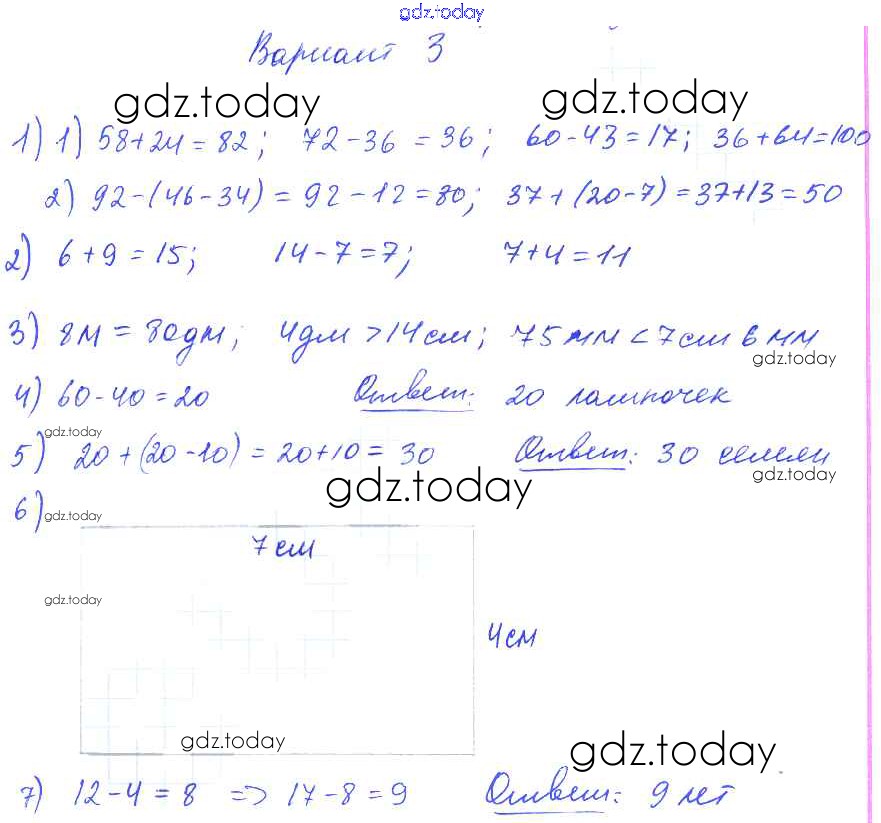 gdz.today
Вариант 3
gdz.today gdz.today
1) 1) 58+24=82; 72-36=36; 60-43=17; 36+64=100
2) 92-(46-34)=92-12=80; 37+(20-7)=37+13=50
2) 6+9=15; 14-7=7; 7+4=11
3) 8м=80дм; 4дм>14см; 75мм<7см 6мм
gdz.today
4) 60-40=20 Ответ: 20 лампочек
gdz.today
5) 20+(20-10)=20+10=30 Ответ: 30 семян
gdz.today gdz.today
6) gdz.today
7см
gdz.today
4см
gdz.today gdz.today
7) 12-4=8 => 17-8=9 Ответ: 9 лет